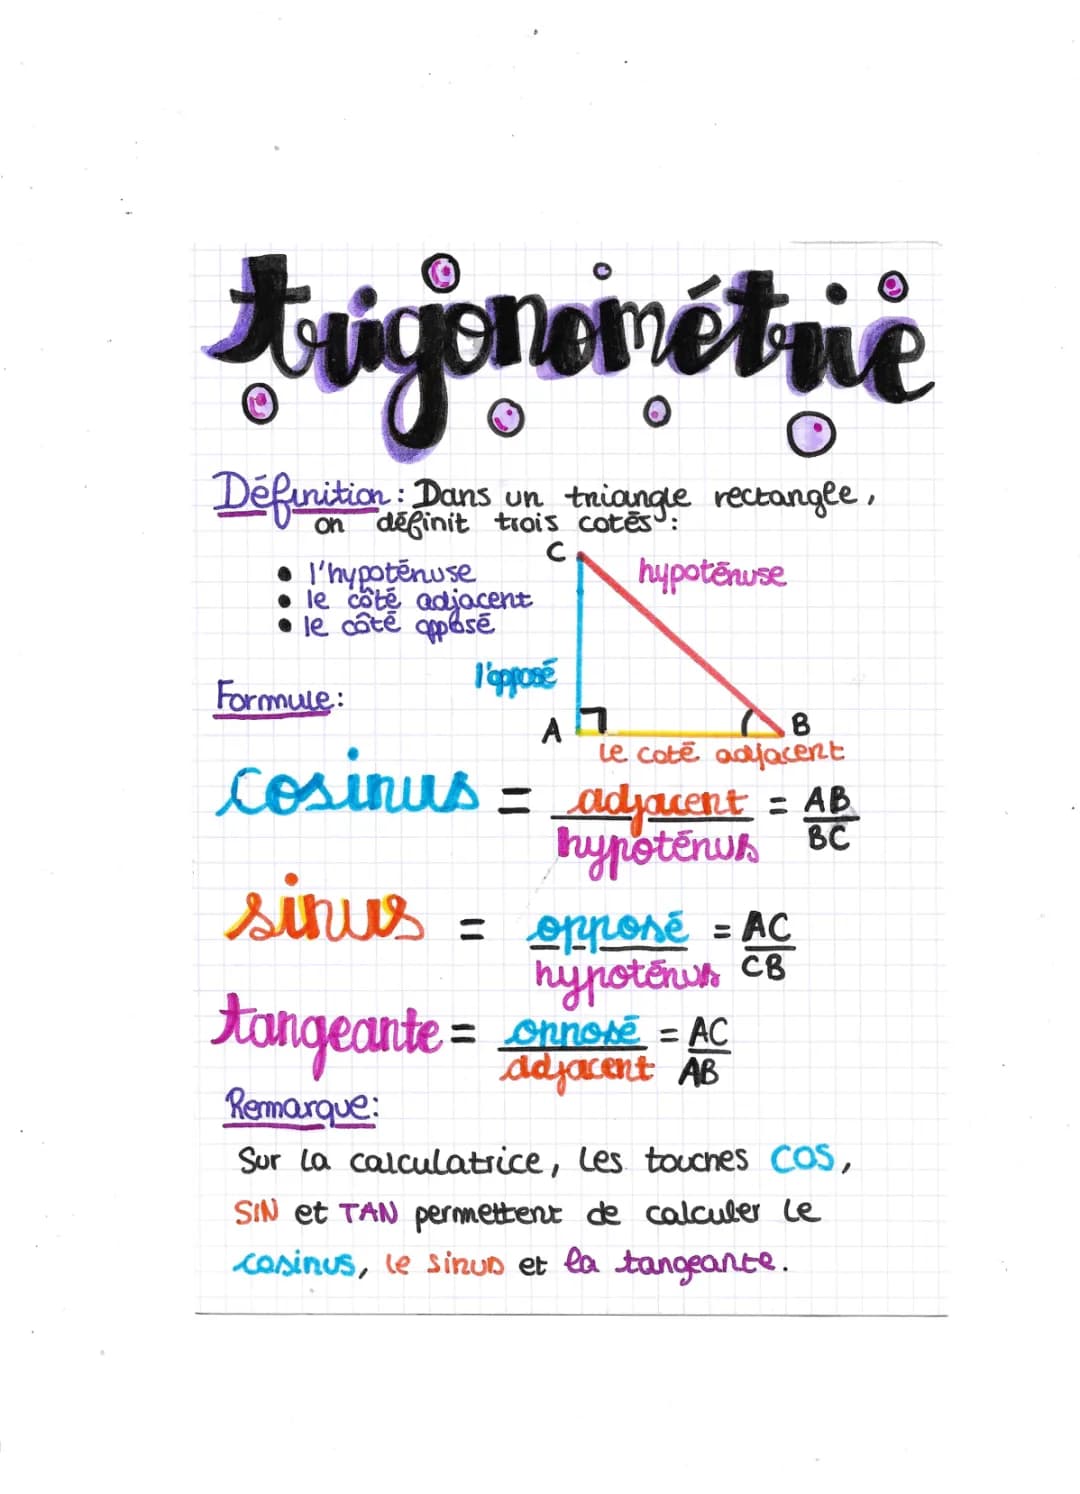 trigonométrie
Définition : Dans un triangle rectangle,
on définit trois cotés :
• l'hypoténuse
• le côté adjacent
• le côté opposé
C
hypoténuse
l'opposé
A
B
le coté adjacent
Formule :
cosinus = adjacent = AB
hypoténus BC
sinus = opposé = AC
hypoténus CB
tangeante = opposé = AC
adjacent AB
Remarque :
Sur la calculatrice, les touches COS,
SIN et TAN permettent de calculer le
cosinus, le sinus et la tangeante.